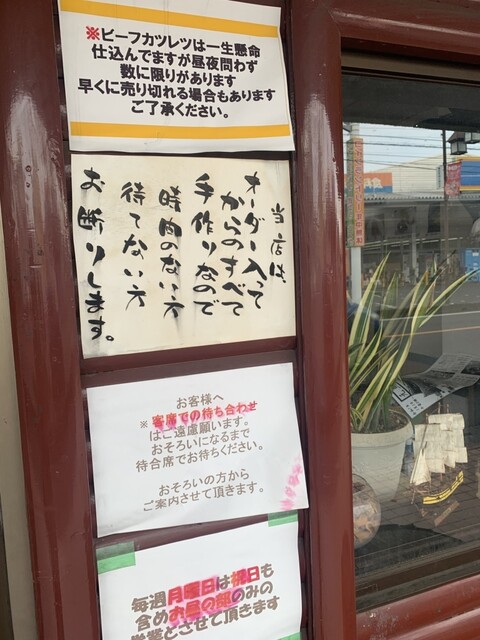 ※ビーフカツレツは一生懸命
仕込んでますが昼夜問わず
数に限りがあります
早くに売り切れる場合もあります
ご了承ください。
当店は、
オーダー入って
からのすべて
手作りなので
時間のない方
待てない方
お断りします。
お客様へ
※ 客席での待ち合わせ
はご遠慮願います。
おそろいになるまで
待合席でお待ちください。
おそろいの方から
ご案内させて頂きます。
毎週月曜日は祝日も
含めお昼の部のみの
営業とさせて頂きます